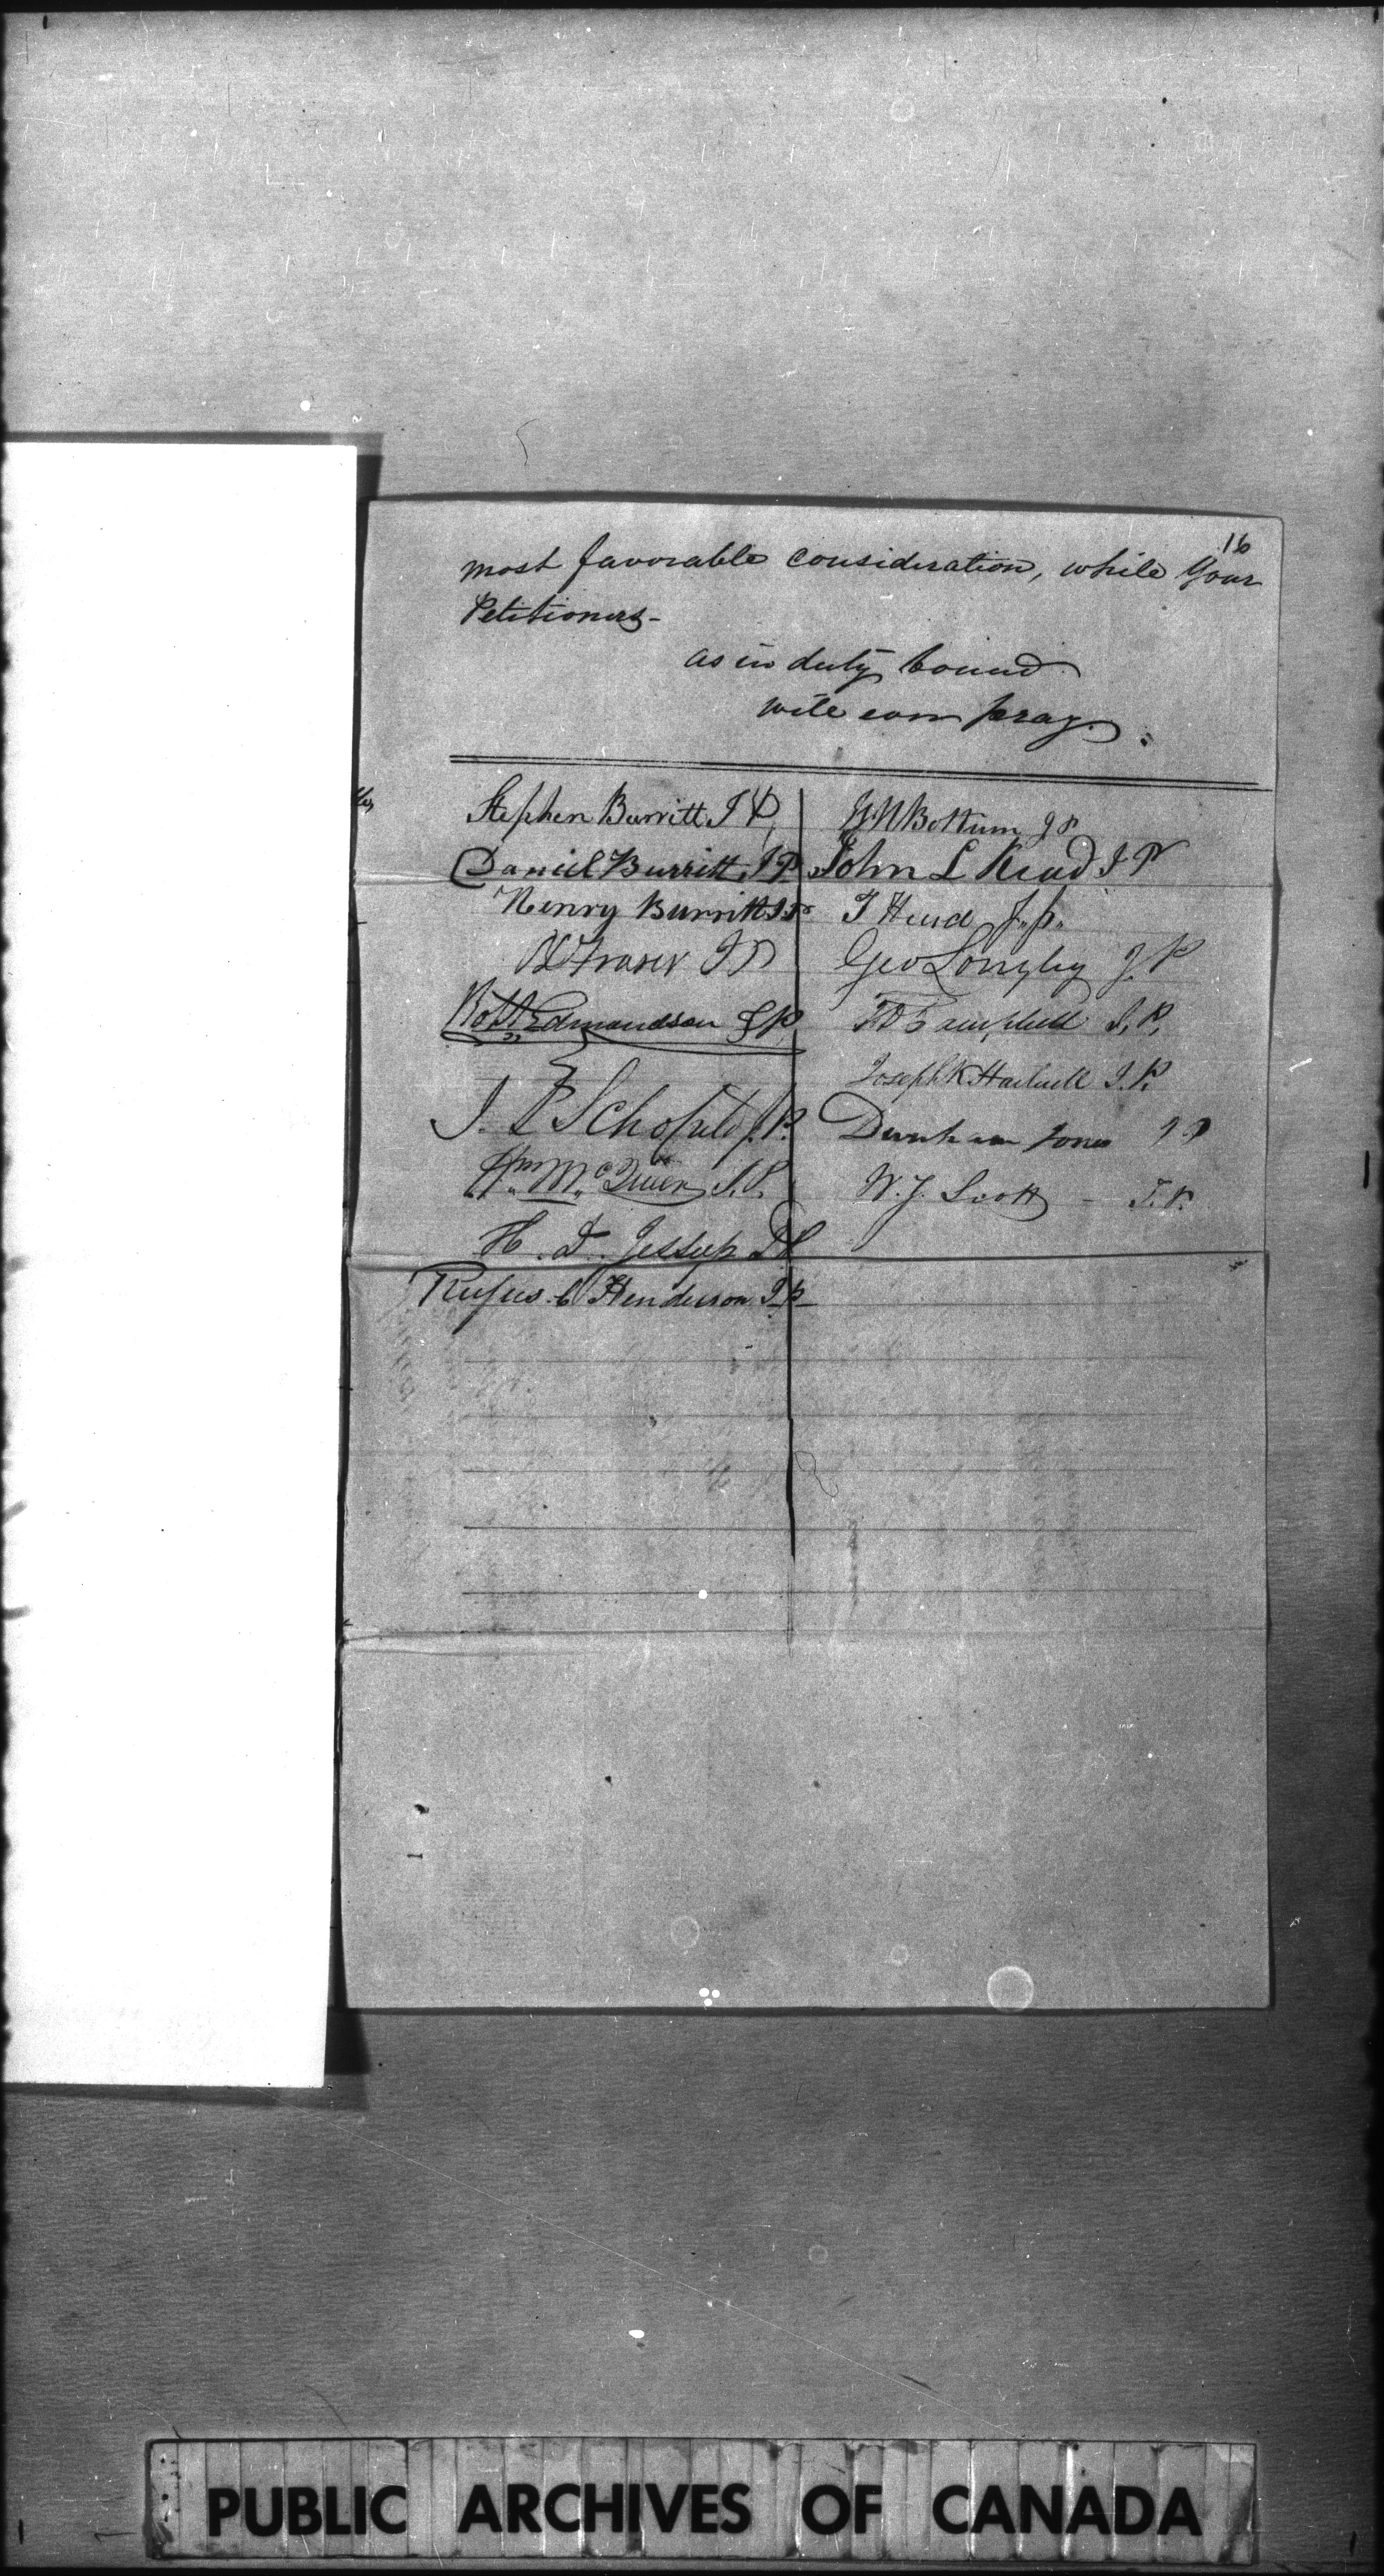 16
most favorable consideration, while Your
Petitioners-
as in duty bound
will ever pray.
Stephen Burritt J P
Daniel Burritt, J P.
Henry Burritt J.P
Fraser J P
Robt Edmondson J P
J. L Schofield J.P.
Wm. McQueen J.P.
H. D. Jessup J P
Rufus C Henderson J p
W H Bottum J P
John L Read J P
T Hurd J. p.
Geo Longley J. P
T D Campbell J. P.
Joseph K Hartwell J. P.
Dunham Jones J P
W. J. Scott - J. P.
PUBLIC ARCHIVES OF CANADA